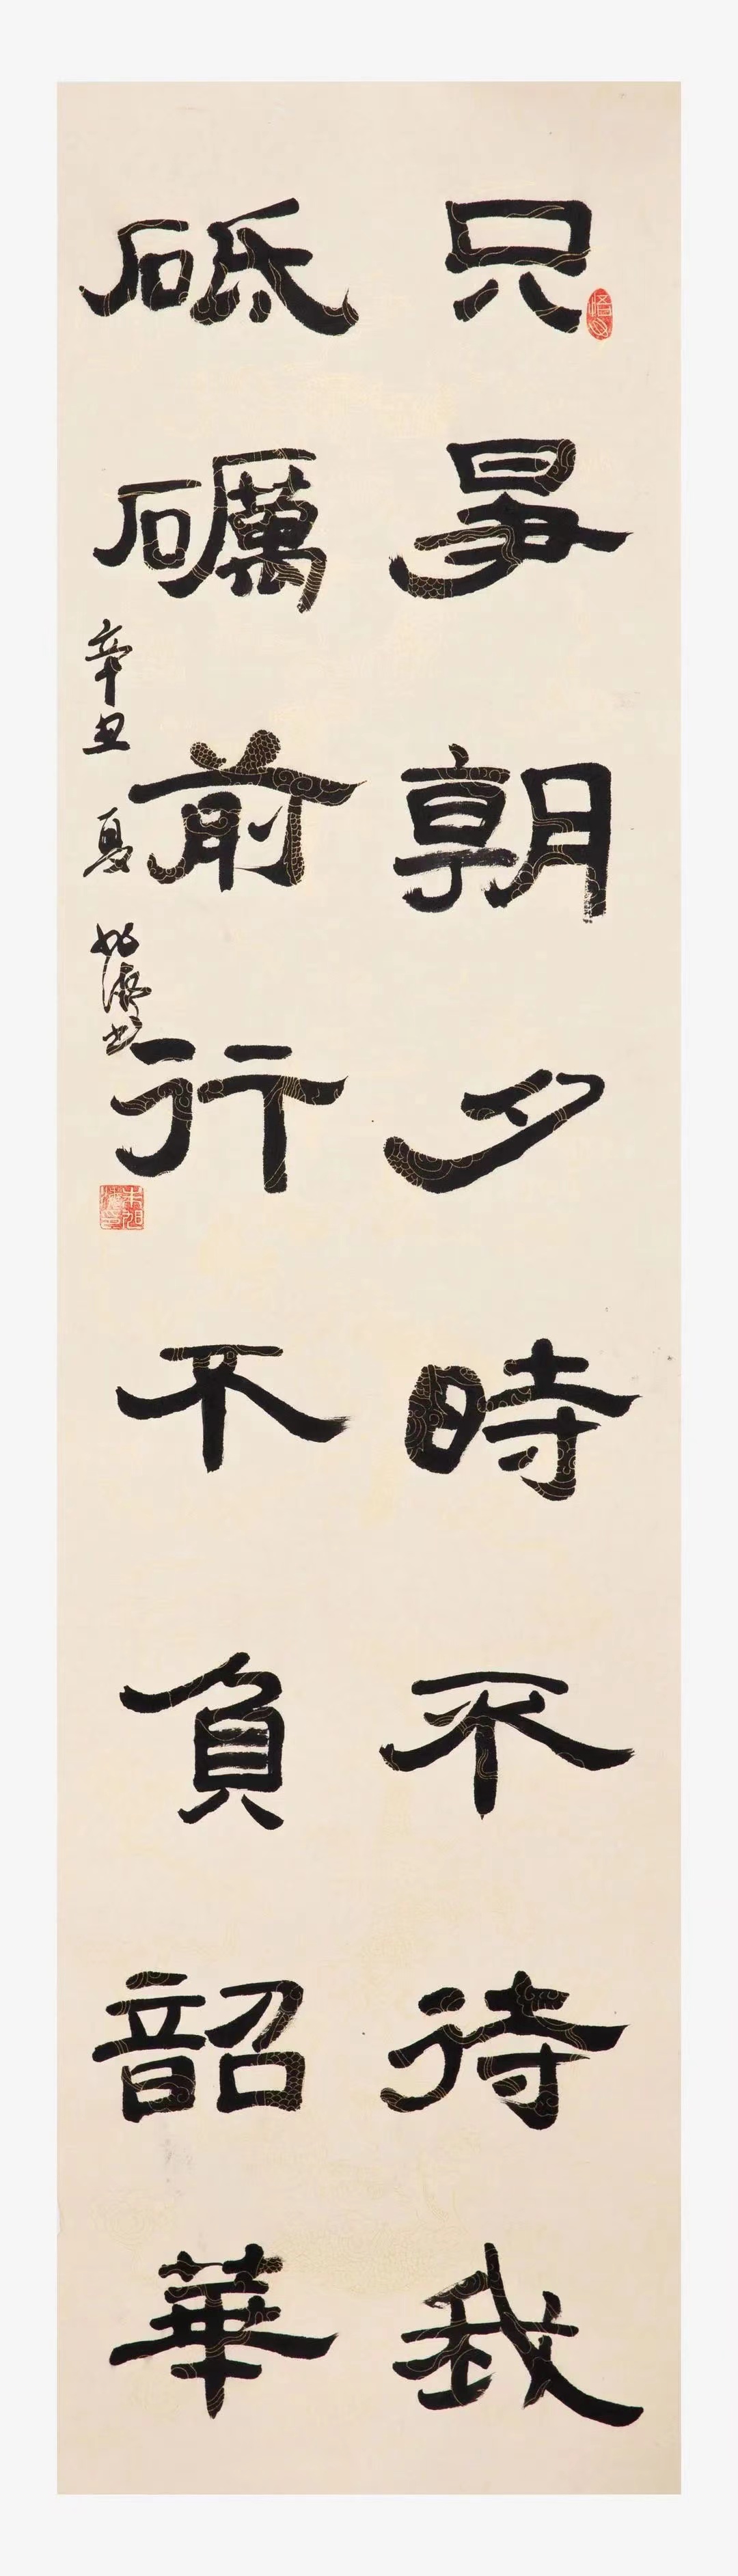 只爭朝夕時不待我
砥礪前行不負韶華
辛丑夏 书